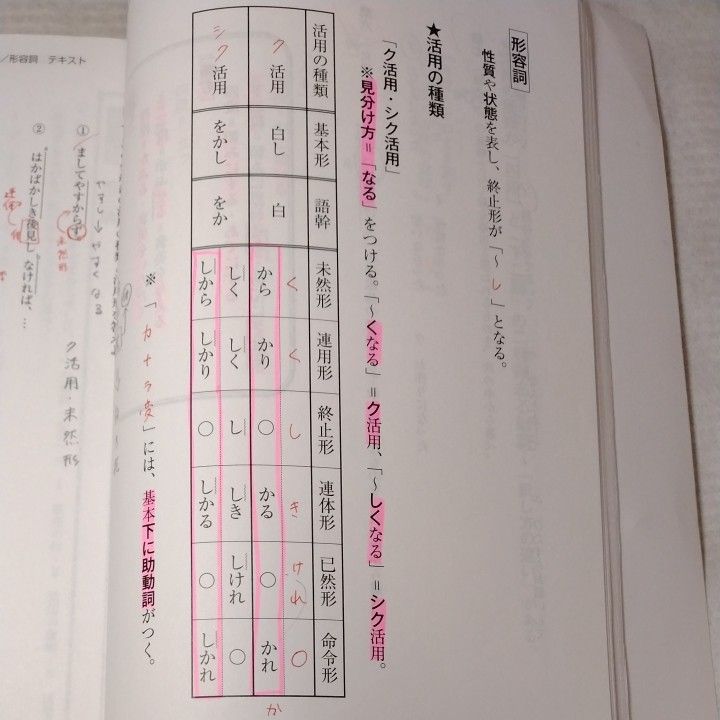 形容詞
性質や状態を表し、終止形が「～し」となる。
★活用の種類
「ク活用・シク活用」
※見分け方＝「なる」をつける。「～くなる」＝ク活用、「～しくなる」＝シク活用。
活用の種類 基本形 語幹 未然形 連用形 終止形 連体形 已然形 命令形
ク活用 白し 白 く く し き けれ ○
から かり ○ かる ○ かれ
シク活用 をかし をか しく しく し しき しけれ ○
しから しかり ○ しかる ○ しかれ
か
※「カナラ変」には、基本下に助動詞がつく。
／形容詞 テキスト
① ましてやすからず
未然形
やすし→やすくなる
ク活用・未然形
② はかばかしき後見しなければ、…